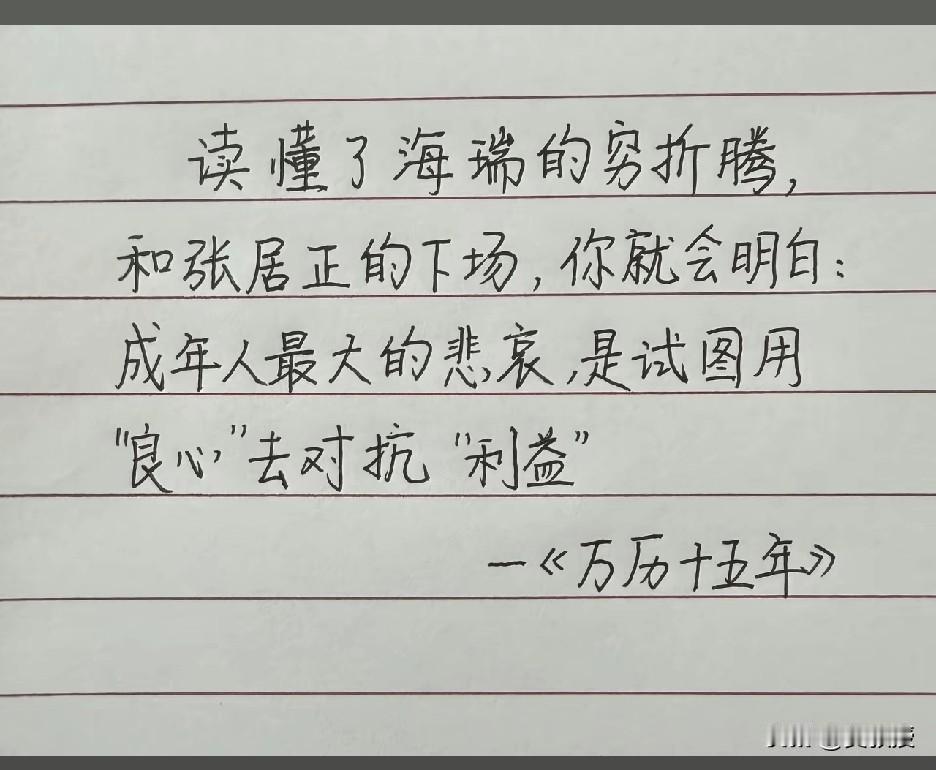 读懂了海瑞的穷折腾,
和张居正的下场,你就会明白:
成年人最大的悲哀,是试图用
"良心,"去对抗"利益"
—《万历十五年》